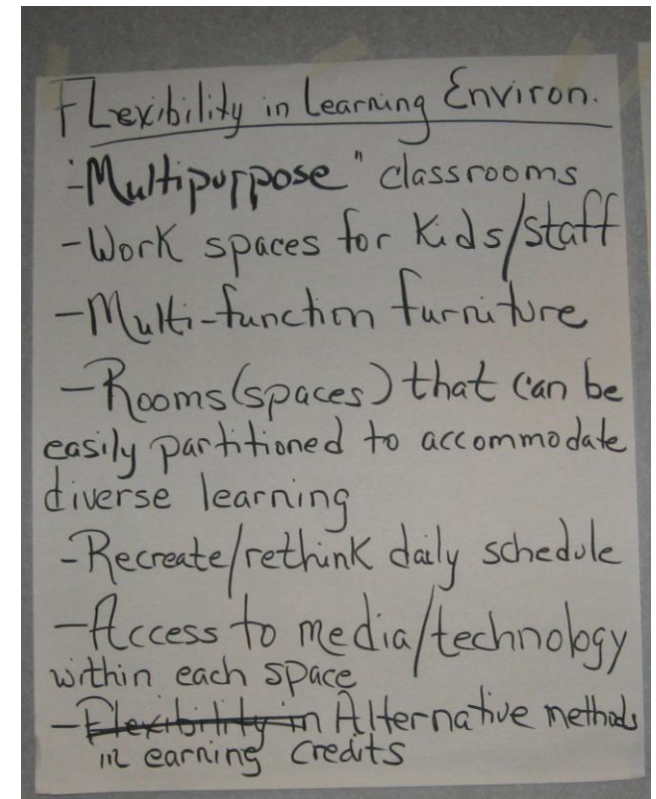 Flexibility in Learning Environ.
-"Multipurpose" classrooms
-Work spaces for kids/staff
-Multi-function furniture
-Rooms (spaces) that can be
easily partitioned to accommodate
diverse learning
-Recreate/rethink daily schedule
-Access to media/technology
within each space
-Flexibility in Alternative methods
in earning credits